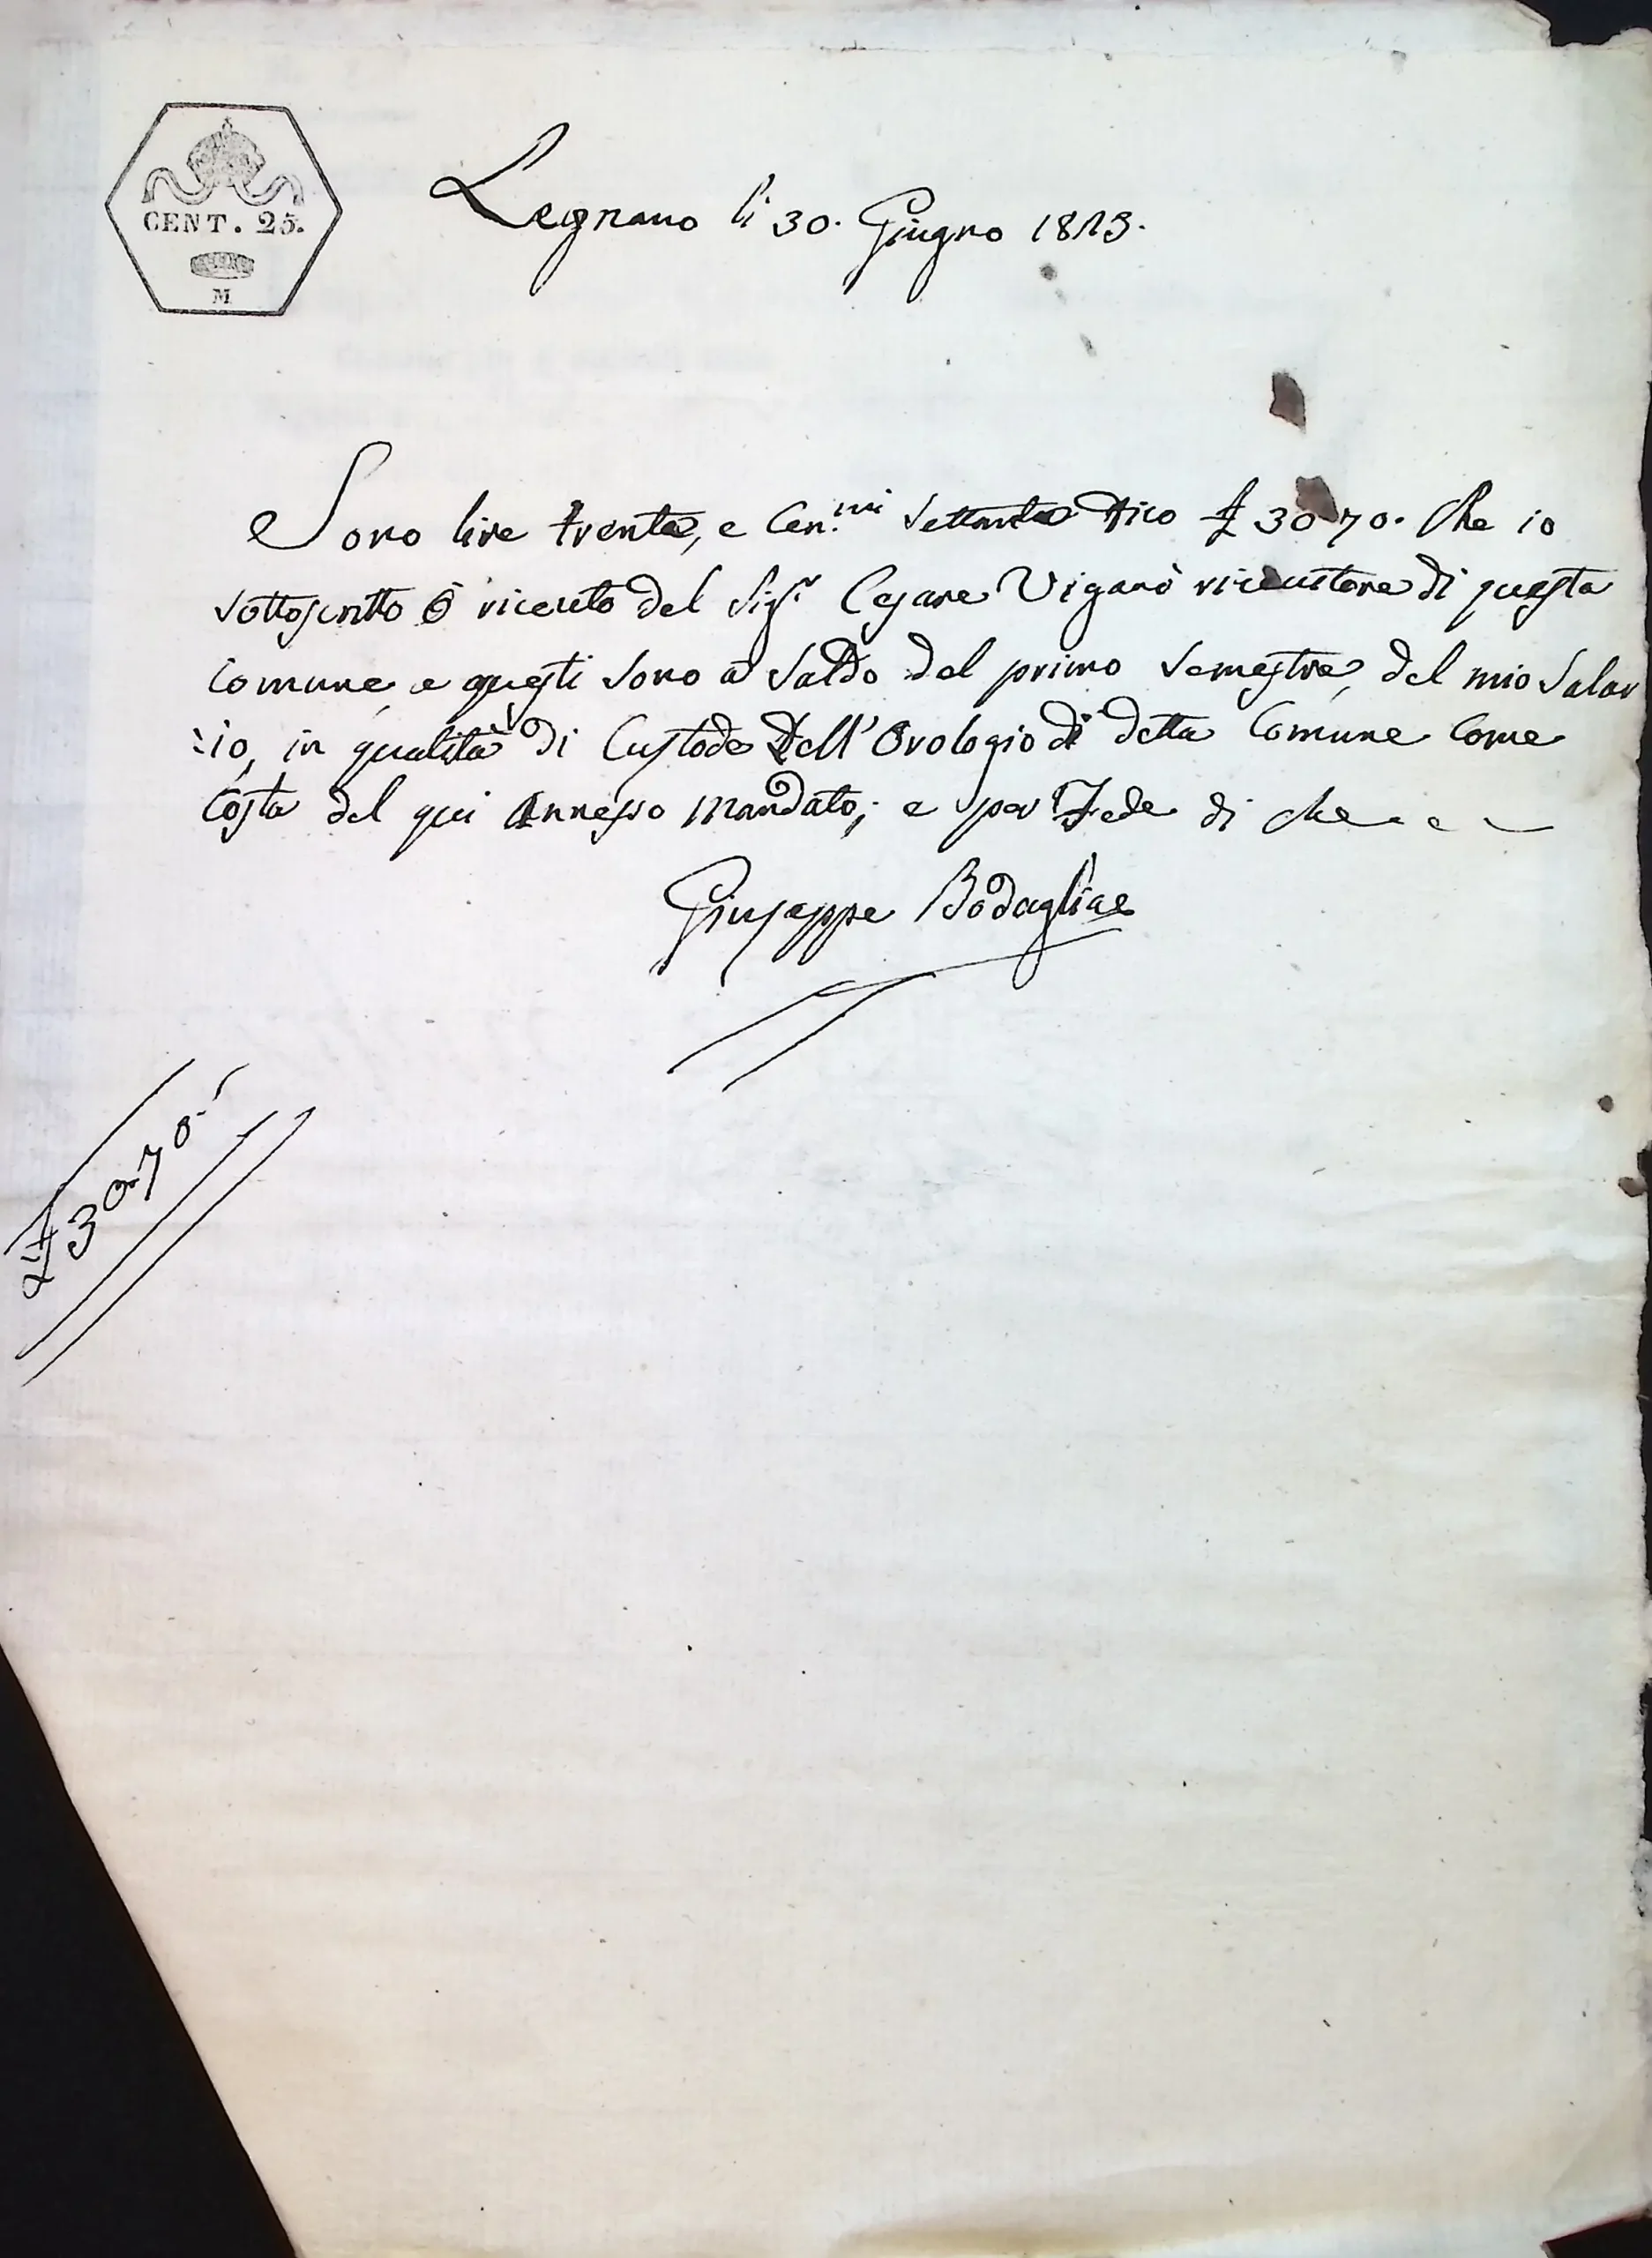 CENT. 25.
M
Legnano li 30. Giugno 1813.
Sono lire trenta, e Cen.mi Settanta Dico £ 30 70. Che io
sottoscritto ò riceuto del Sig.r Cesare Viganò ricevitore di questa
Comune, e questi Sono a Saldo del primo Semestre, del mio Salar
:io, in qualità di Custode Dell' Orologio di detta Comune Come
Costa del qui Annesso Mandato; e per Fede di che
Giuseppe
£ 30.70.